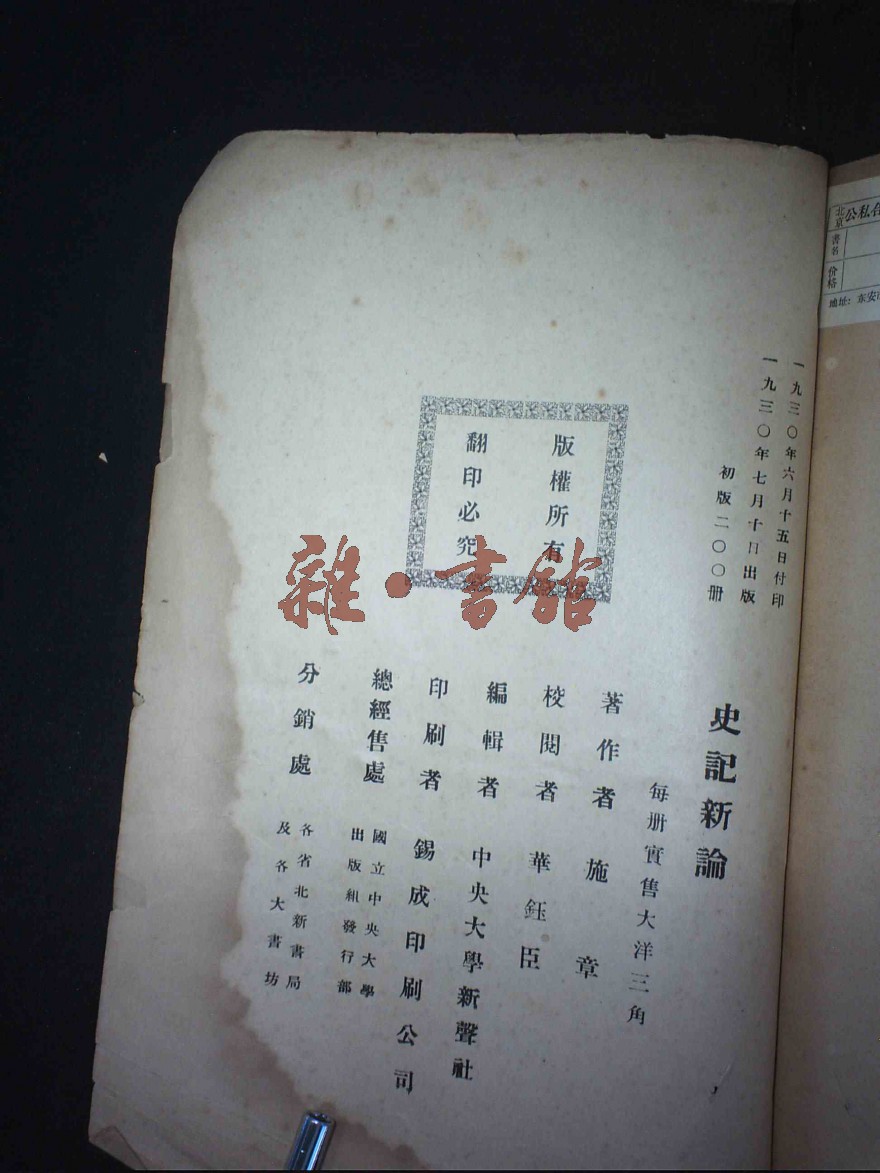 一九三〇年六月十五日付印
一九三〇年七月十日出版
初版二〇〇册
史記新論
每册實售大洋三角
著作者 施章
校閱者 華鈺臣
編輯者 中央大學新聲社
印刷者 錫成印刷公司
總經售處 國立中央大學
出版組發行部
分銷處 各省北新書局
及各大書坊
版權所有
翻印必究
雜·書館
北京
公私合
書名
价格
地址：东安